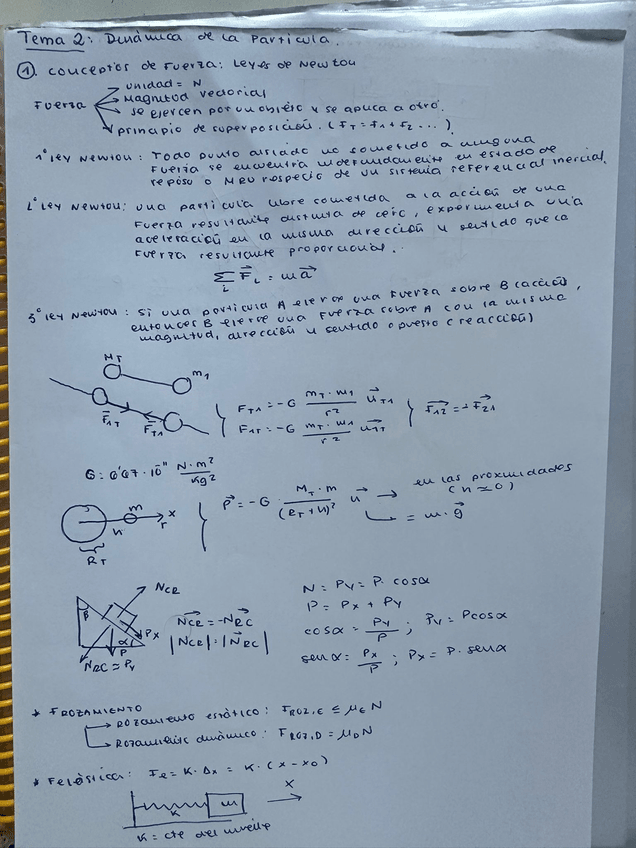 Tema 2: Dinámica de la Partícula.
① Conceptos de Fuerza: Leyes de Newton
Fuerza
unidad = N
Magnitud vectorial
se ejercen por un objeto y se aplica a otro.
principio de superposición. (F_T = F_1 + F_2 ...)
1º Ley Newton: Todo punto aislado no sometido a ninguna
fuerza se encuentra indefinidamente en estado de
reposo o MRU respecto de un sistema referencial inercial.
2º Ley Newton: una partícula libre sometida a la acción de una
Fuerza resultante distinta de cero, experimenta una
aceleración en la misma dirección y sentido que la
fuerza resultante proporcional.
∑_i F⃗_i = m a⃗
3º Ley Newton: Si una partícula A ejerce una fuerza sobre B (acción),
entonces B ejerce una fuerza sobre A con la misma
magnitud, dirección y sentido opuesto (reacción)
M_T
m_1
F⃗_1T F⃗_T1
F_T1 = -G (m_T · m_1)/r² u⃗_T1
F_1T = -G (m_T · m_1)/r² u⃗_1T
F⃗_12 = -F⃗_21
G: 6'67 · 10⁻¹¹ N·m²/kg²
m
h
x
r
R_T
P⃗ = -G · (M_T · m)/(R_T + h)² u⃗ → en las proximidades
(h ≃ 0)
= m · g⃗
N_CR
β
α
P
P_x
N_RC = P_y
N⃗_CR = -N⃗_RC
|N⃗_CR| = |N⃗_RC|
N = P_y = P · cosα
P = P_x + P_y
cosα = P_y/P ; P_y = P cosα
senα = P_x/P ; P_x = P · senα
* FROZAMIENTO
→ Rozamiento estático: F_ROZ,E ≤ μ_E N
→ Rozamiento dinámico: F_ROZ,D = μ_D N
* Felástica: F_e = K · Δx = K · (x - x_0)
K
m
x
K = cte del muelle